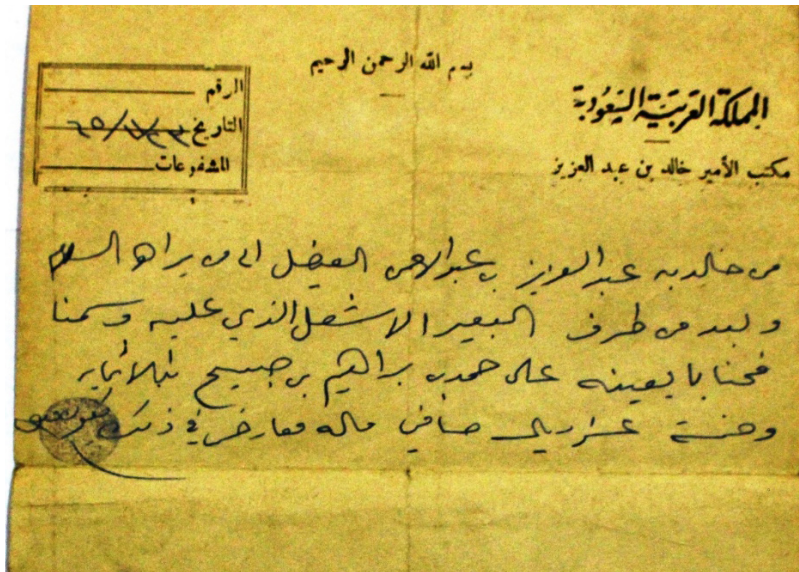 بسم الله الرحمن الرحيم
المملكة العربية السعودية
مكتب الأمير خالد بن عبد العزيز
الرقم
التاريخ
المشفوعات
من خالد بن عبد العزيز بن عبد الرحمن الفيصل الى من يراه السلام
وبعد من طرف البعير الاشعل الذي عليه وسمنا
فحنا بايعينه على حمد بن براهيم بن جبيح بثلاثماية
وخمسة عشر ريال صافي ماله معارض في ذلك